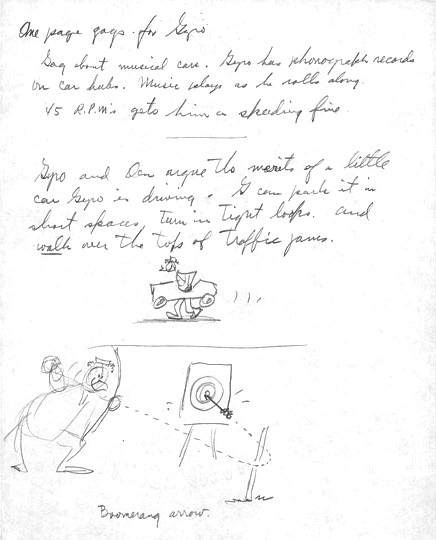 One page gags for Gyro
Gag about musical cars. Gyro has phonograph records
on car hubs. Music plays as he rolls along.
45 R.P.M.'s gets him a speeding fine.
Gyro and Don argue the merits of a little
car Gyro is driving. G can park it in
short spaces, turn in tight loops. and
walk over the tops of traffic jams.
Boomerang arrow.